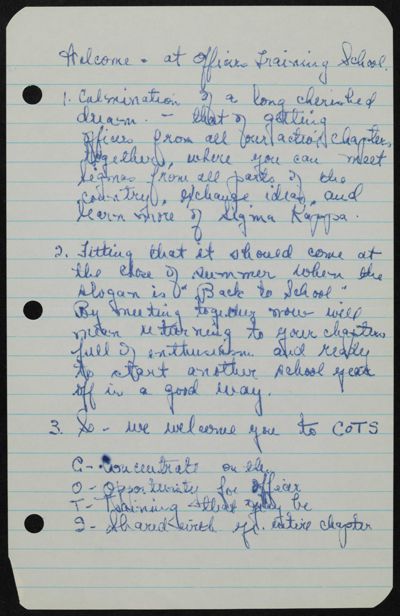 Welcome - at Officers Training School.
1. Culmination of a long cherished
dream. - that of getting
officers from all our active chapters
together, where you can meet
Sigmas from all parts of the
country, exchange ideas, and
learn more of Sigma Kappa.
2. Fitting that it should come at
the close of summer when the
slogan is "Back to School"
By meeting together now will
mean returning to your chapters
full of enthusiasm and ready
to start another school year
off in a good way.
3. So - we welcome you to COTS
C - Concentrate on the
O - Opportunity for officer
T - Training that may be
S - Shared with yr. entire chapter